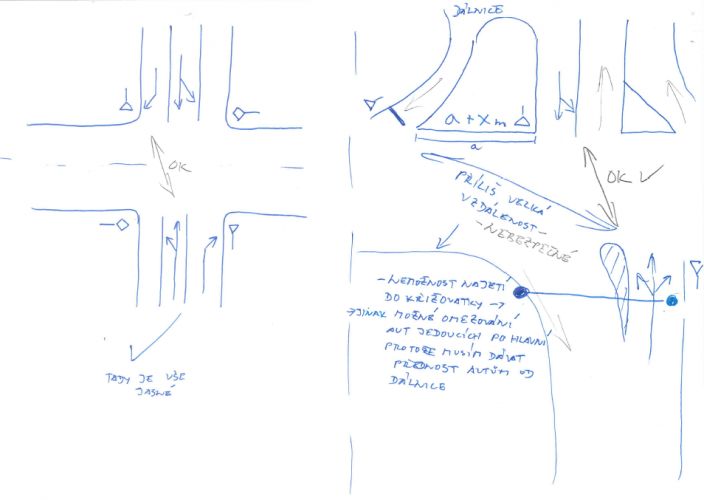 OK
TADY JE VŠE
JASNÉ
DÁLNICE
a + X m
a
OK
PŘÍLIŠ VELKÁ
VZDÁLENOST -
- NEBEZPEČNÉ
- NEMOŽNOST NAJETÍ
DO KŘIŽOVATKY ->
-> JINAK MOŽNÉ OMEZOVÁNÍ
AUT JEDOUCÍCH PO HLAVNÍ
PROTOŽE MUSÍM DÁVAT
PŘEDNOST AUTŮM OD
DÁLNICE